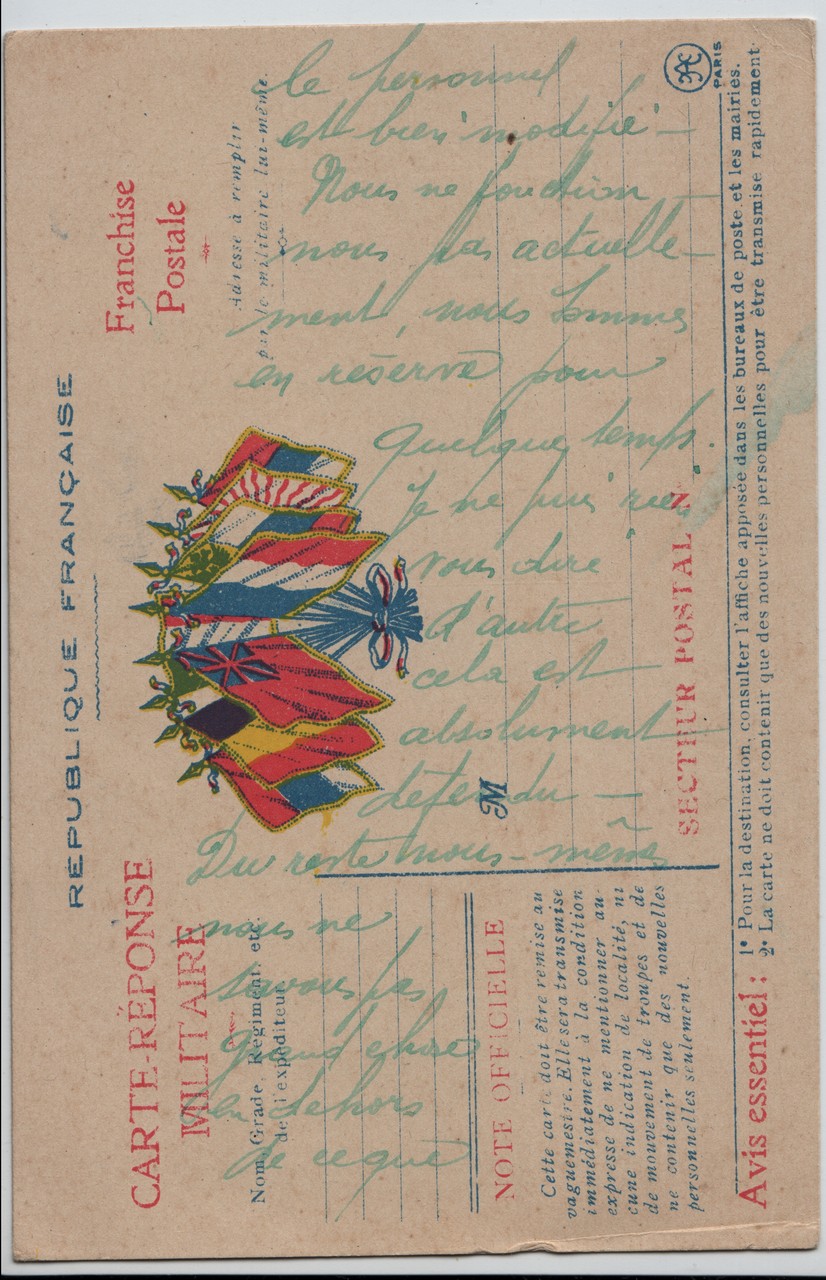 le personnel
est bien modifié —
Nous ne fonction —
nous pas actuelle —
ment, nous sommes
en réserve pour
quelque temps.
Je ne puis rien
vous dire
d'autre
cela est
absolument
défendu —
Du reste nous-mêmes
nous ne
savons pas
grand chose
en dehors
de ce que
RÉPUBLIQUE FRANÇAISE
CARTE-RÉPONSE
MILITAIRE
Franchise
Postale
Adresse à remplir
par le militaire lui-même.
Nom, Grade, Régiment, etc.
de l'expéditeur
M
SECTEUR POSTAL N
NOTE OFFICIELLE
Cette carte doit être remise au
vaguemestre. Elle sera transmise
immédiatement à la condition
expresse de ne mentionner au-
cune indication de localité, ni
de mouvement de troupes et de
ne contenir que des nouvelles
personnelles seulement.
Avis essentiel :
1° Pour la destination, consulter l'affiche apposée dans les bureaux de poste et les mairies.
2° La carte ne doit contenir que des nouvelles personnelles pour être transmise rapidement.
PARIS